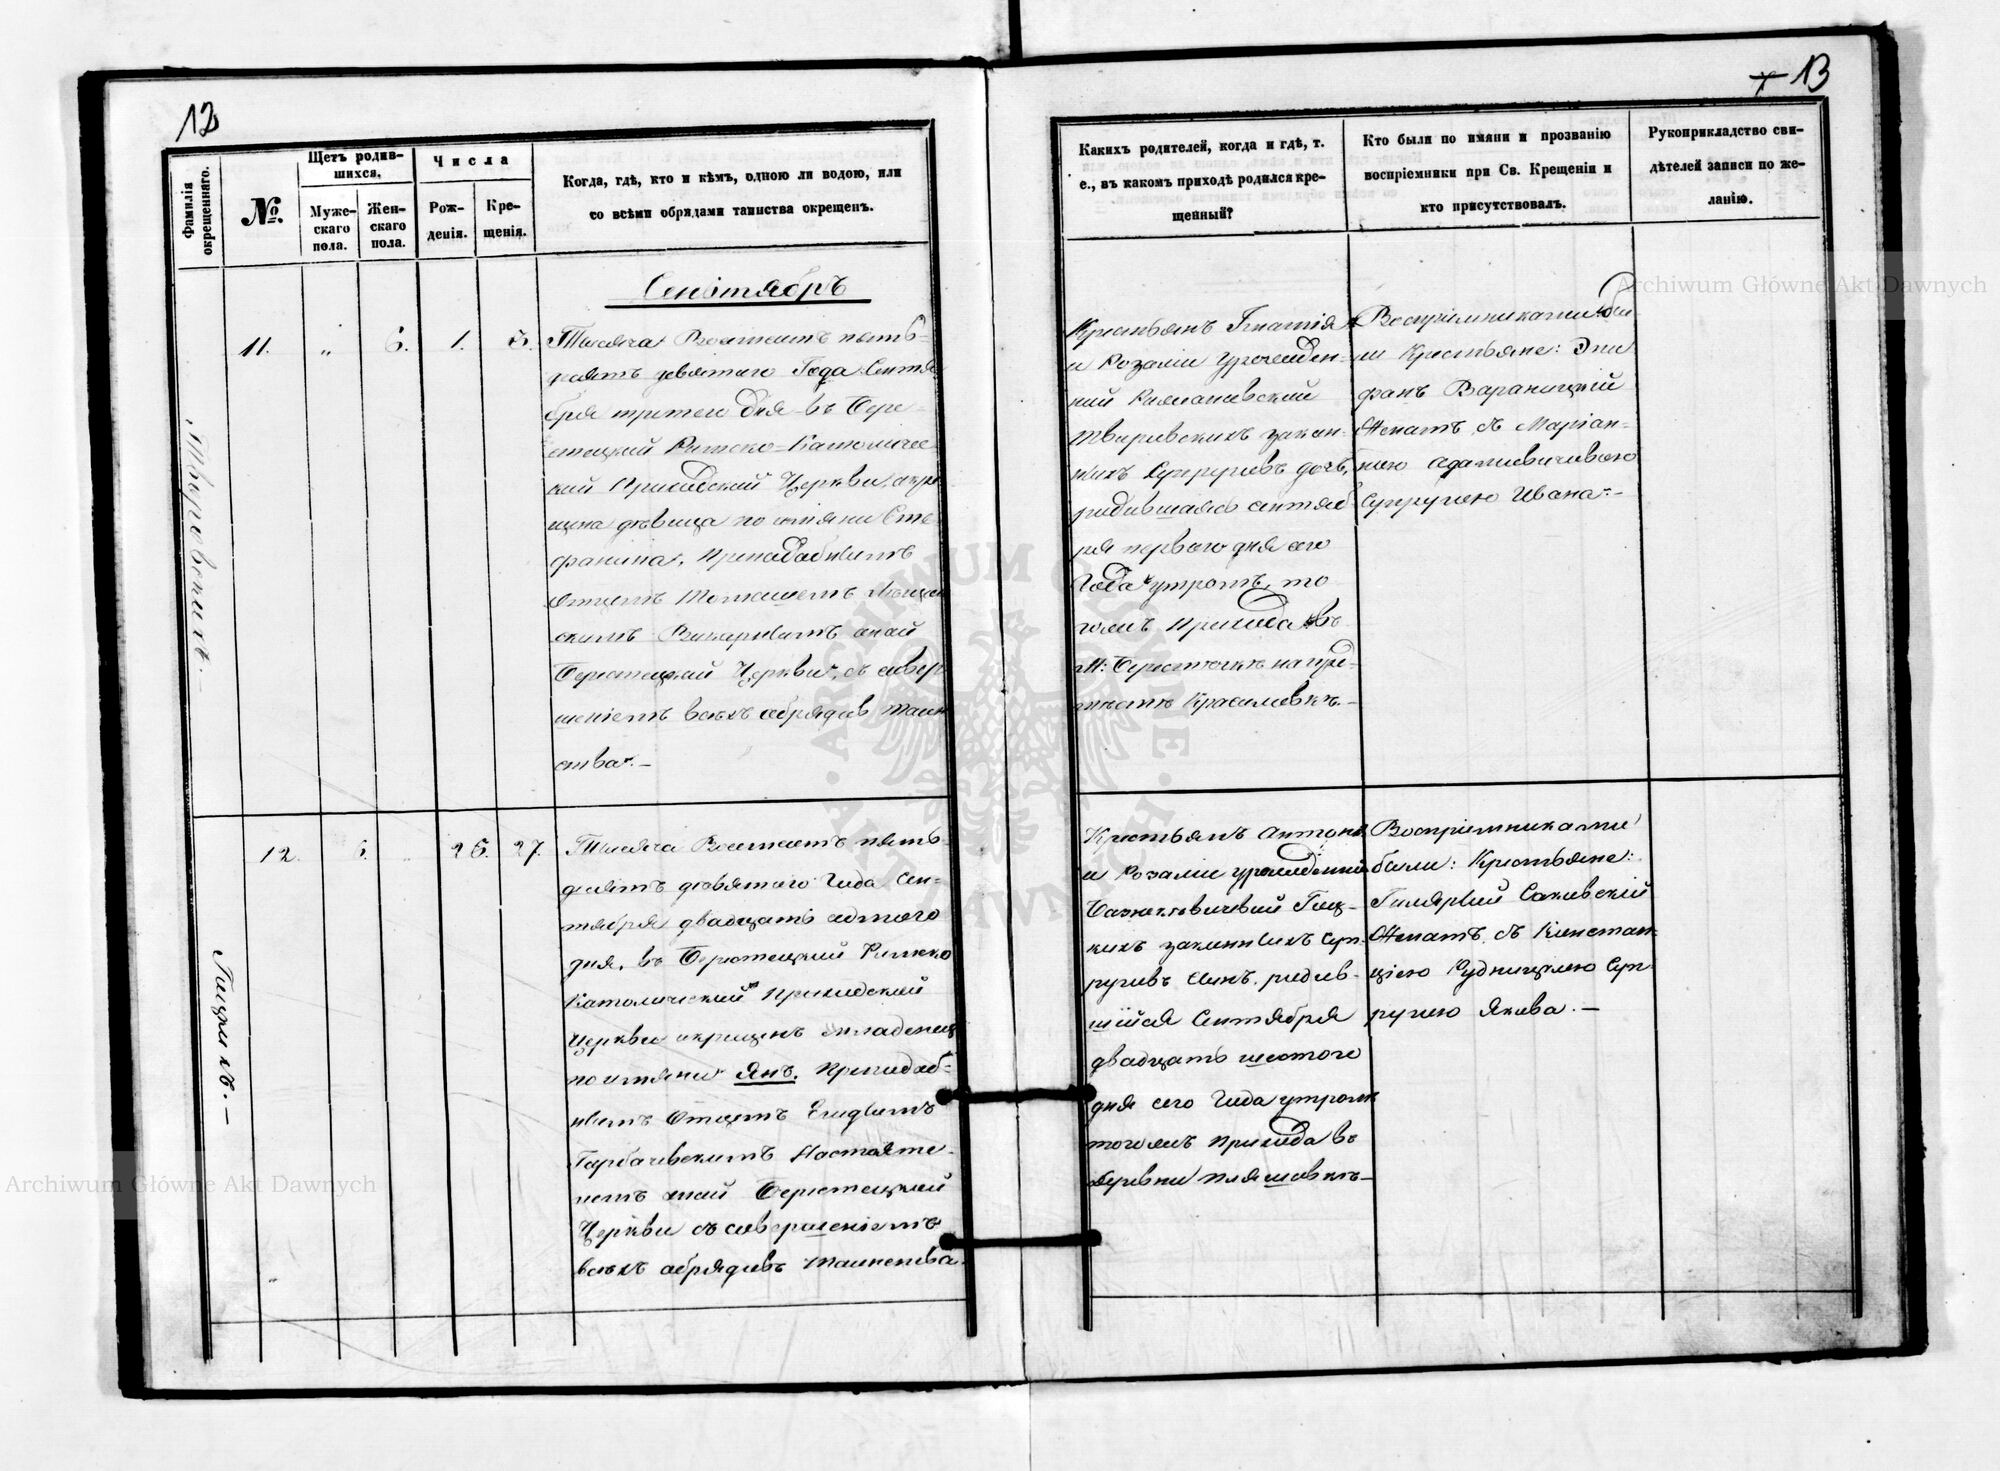 12
Фамилія окрещеннаго.
№.
Щетъ родив-
шихся.
Муже-
скаго
пола.
Жен-
скаго
пола.
Числа
Рож-
денія.
Кре-
щенія.
Когда, гдѣ, кто и кѣмъ, одною ли водою, или
со всѣми обрядами таинства окрещенъ.
Сентябрь
11. " 6. 1.
Тысяча Восемсотъ пять-
десятъ девятого Года Сентя
бря третего дня въ Бере-
стецкой Римско-Католичес-
кой Приходской Церкви окре
щена девица по имяни Сте-
фанина, Преподобнымъ
Отцемъ
Викарнымъ оной
Берестецкой Церкви, съ совер
шеніемъ всѣхъ обрядов Таин
ства.—
12. 27.
Тысяча Восемсотъ пять-
десятъ девятого Года Сен-
тября двадцать
дня, въ Берестецкой Римско
Католической Приходской
Церкви окрещенъ младенец
по имяни Янъ. Преподоб-
нымъ Отцемъ
Горбачевскимъ Настояте-
лемъ оной Берестецкой
Церкви съ совершеніемъ
всѣхъ обрядовъ Таинства.
Гицкихъ.—
13
Какихъ родителей, когда и гдѣ, т.
е., въ какомъ приходѣ родился кре-
щенный?
Кто были по имяни и прозванію
воспріемники при Св. Крещеніи и
кто присутствовалъ.
Рукоприкладство сви-
дѣтелей записи по же-
ланію.
Крестьянъ Игнатія
и Розаліи урожден-
ной
закон-
ныхъ Супруговъ дочь,
родившаяся Сентяб
ря первого дня сего
Года утромъ, то
гожъ Прихода въ
М: Берестечкѣ на пред-
мѣстѣ
Воспріемниками бы
ли Крестьяне: Епи
фанъ Вараницкій
Женатъ, съ Маріан-
ною
Супругою Ивана.—
Крестьянъ Антона
и Розаліи урожденной
Гиц-
кихъ законныхъ Суп-
руговъ Сынъ, родив-
шійся Сентября
двадцать шестого
дня сего Года утромъ
тогожъ Прихода въ
Деревни Пляшовкѣ—
Воспріемниками
были: Крестьяне:
Гиляріий Саковскій
Женатъ, съ Констан-
цією Рудницкою Суп-
ругою Якова.—
Archiwum Główne Akt Dawnych
Archiwum Główne Akt Dawnych
ARCHIWUM GŁÓWNE AKT DAWNYCH